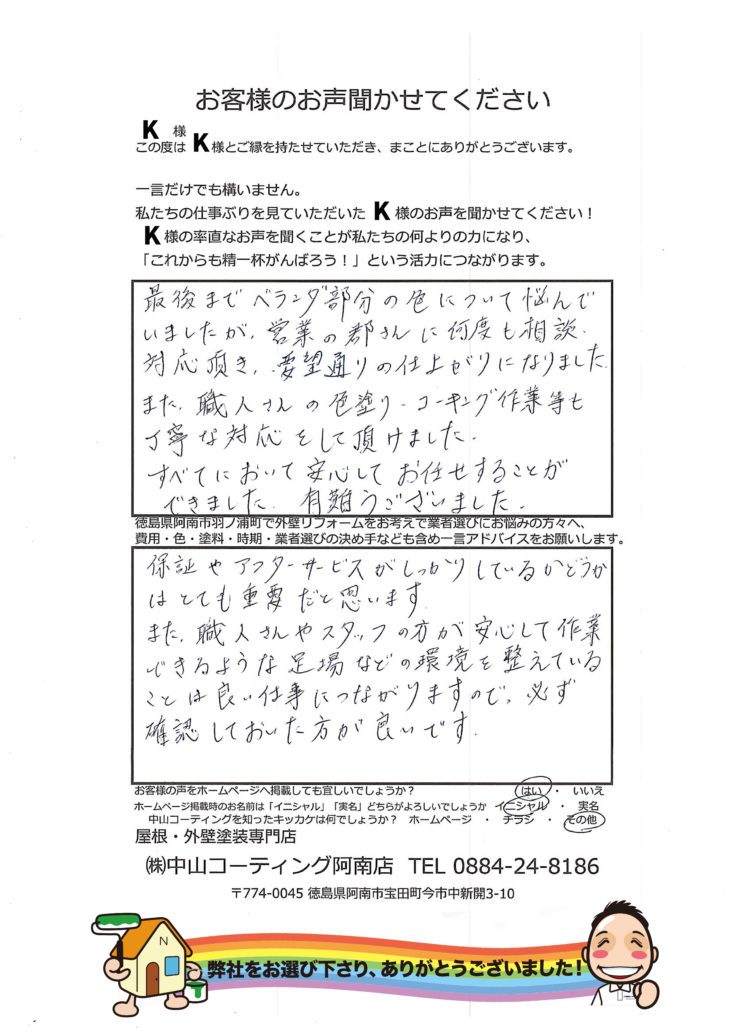 お客様のお声聞かせてください
K 様
この度は K 様とご縁を持たせていただき、まことにありがとうございます。
一言だけでも構いません。
私たちの仕事ぶりを見ていただいた K 様のお声を聞かせてください！
K 様の率直なお声を聞くことが私たちの何よりの力になり、
「これからも精一杯がんばろう！」という活力につながります。
最後までベランダ部分の色について悩んで
いましたが、営業の郡さんに何度も相談、
対応頂き、要望通りの仕上がりになりました。
また、職人さんの色塗り・コーキング作業等も
丁寧な対応をして頂けました。
すべてにおいて安心してお任せすることが
できました。有難うございました。
徳島県阿南市羽ノ浦町で外壁リフォームをお考えで業者選びにお悩みの方々へ、
費用・色・塗料・時期・業者選びの決め手なども含め一言アドバイスをお願いします。
保証やアフターサービスがしっかりしているかどうか
はとても重要だと思います。
また、職人さんやスタッフの方が安心して作業
できるような足場などの環境を整えている
ことは良い仕事につながりますので、必ず
確認しておいた方が良いです。
お客様の声をホームページへ掲載しても宜しいでしょうか？ はい ・ いいえ
ホームページ掲載時のお名前は「イニシャル」「実名」どちらがよろしいでしょうか イニシャル ・ 実名
中山コーティングを知ったキッカケは何でしょうか？ ホームページ ・ チラシ ・ その他
屋根・外壁塗装専門店
㈱中山コーティング阿南店 TEL 0884-24-8186
〒774-0045 徳島県阿南市宝田町今市中新開3-10
N
弊社をお選び下さり、ありがとうございました！